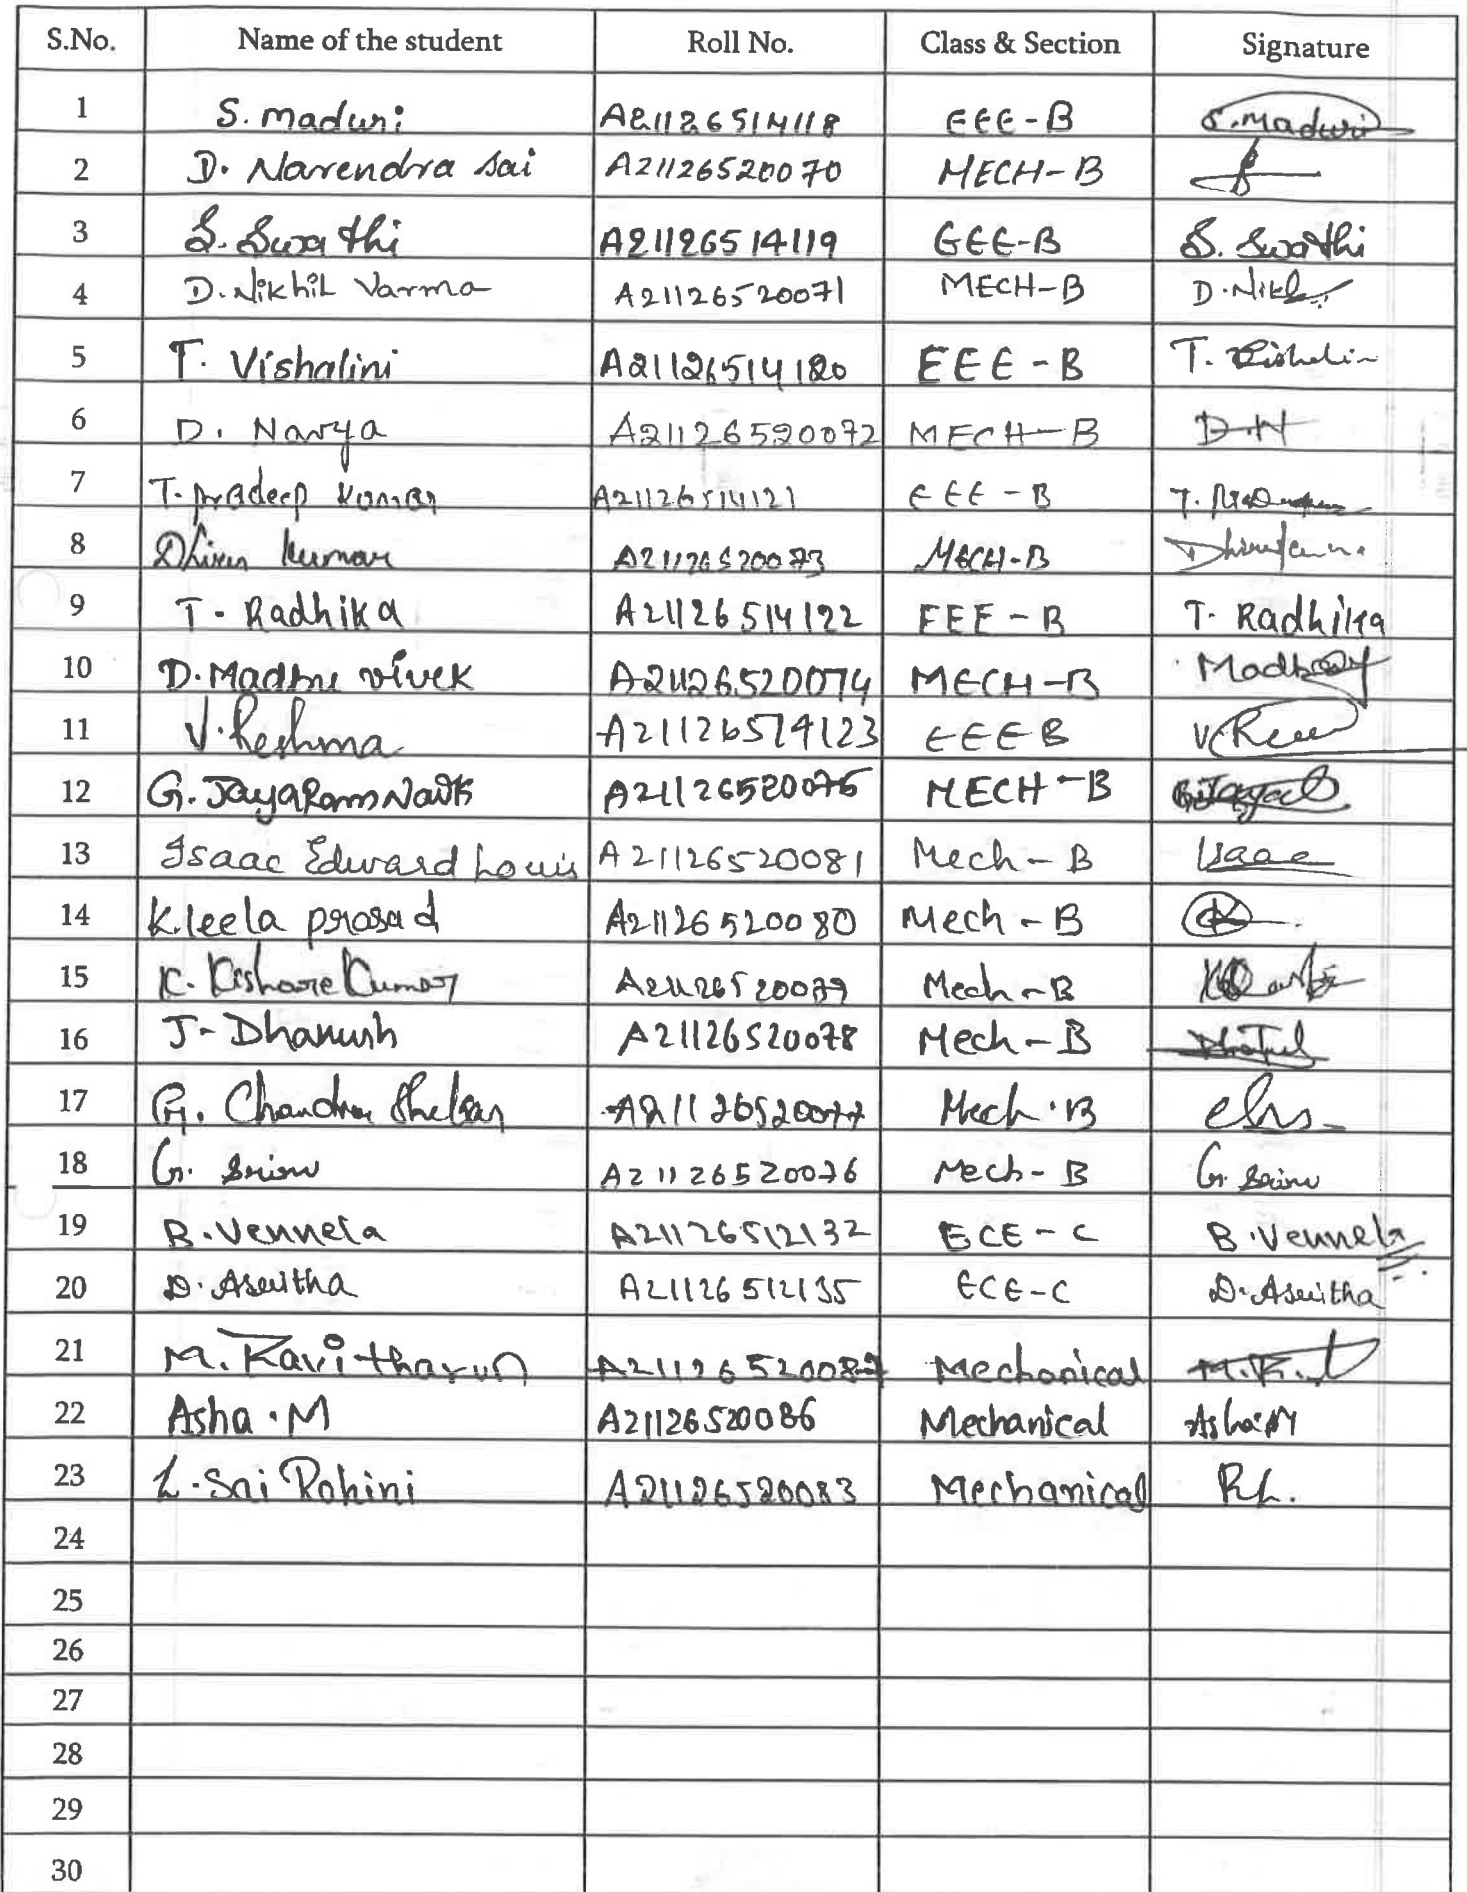 S.No. Name of the student Roll No. Class & Section Signature
1 S. maduri A21126514118 EEE-B S.maduri
2 D. Narendra sai A21126520070 MECH-B
3 S. Swathi A21126514119 EEE-B S. Swathi
4 D. Nikhil Varma A21126520071 MECH-B D.Nikh
5 T. Vishalini A21126514120 EEE-B T. Vishalin
6 D. Navya A21126520072 MECH-B D.N
7 T. pradeep Kumar A21126514121 EEE-B
8 Dhiren Kumar A21126520073 MECH-B
9 T. Radhika A21126514122 EEE-B T. Radhika
10 D. Madhu vivek A21126520074 MECH-B
11 V. Reshma A21126514123 EEE B
12 G. JayaRam Naik A21126520075 MECH-B
13 Isaac Edward Louis A21126520081 Mech-B Isaac
14 K.leela prasad A21126520080 Mech-B
15 K. Kishore Kumar A21126520079 Mech-B
16 J-Dhanush A21126520078 Mech-B
17 G. Chandra Shekar A21126520077 Mech-B
18 G. Srinu A21126520076 Mech-B G. Srinu
19 B. Vennela A21126512132 ECE-C B. Vennela
20 D. Aswitha A21126512135 ECE-C D. Aswitha
21 M. Ravi tharun Mechanical
22 Asha.M A21126520086 Mechanical Asha.M
23 L. Sai Rohini A21126520083 Mechanical RL.
24
25
26
27
28
29
30